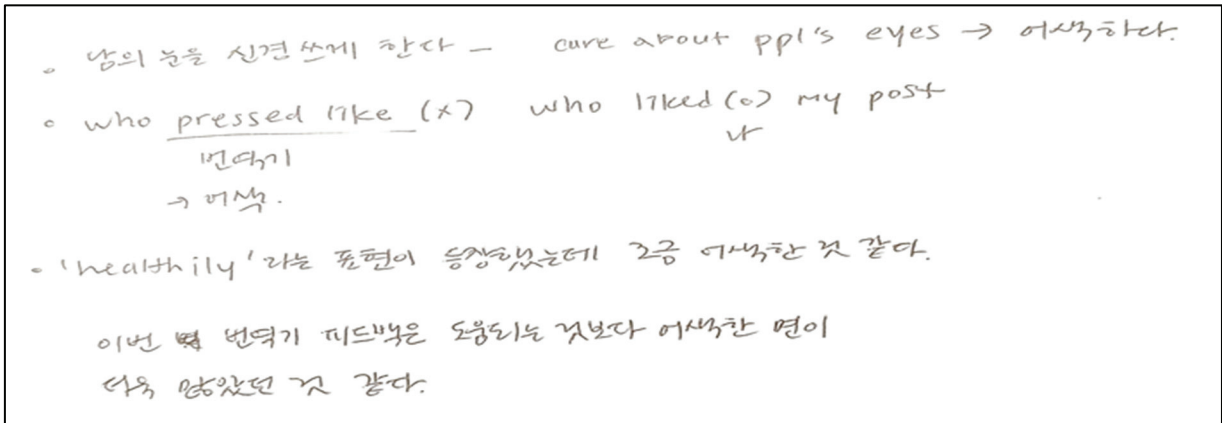 ◦ 남의 눈을 신경 쓰게 한다 - care about ppl's eyes → 어색하다.
◦ who pressed like (x) who liked (o) my post
번역기
나
→ 어색.
• 'healthily'라는 표현이 등장했는데 조금 어색한 것 같다.
이번 번역기 피드백은 도움되는 것보다 어색한 면이
더욱 많았던 것 같다.